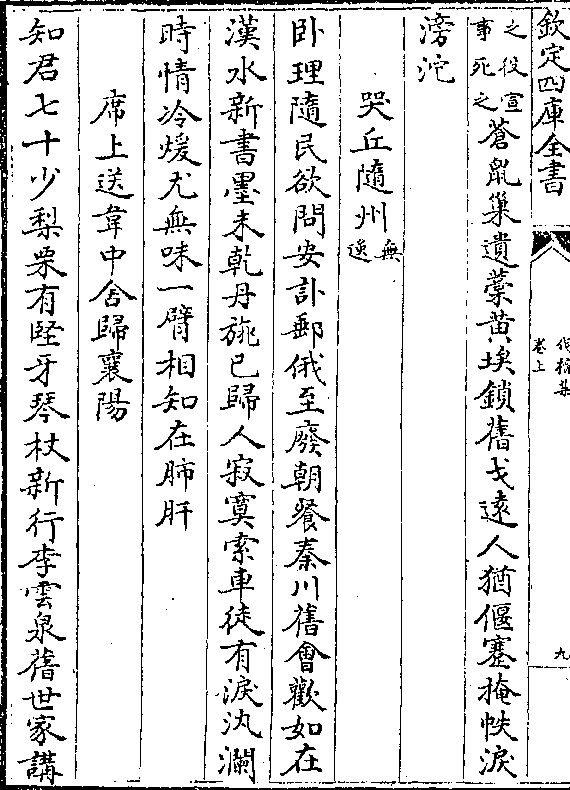 欽定四庫全書
伐檀集
卷上
九
之役宣
事死之
蒼䑕巢遺藁黄埃鎖舊戈逺人猶偃蹇掩帙淚
滂沱
哭丘隨州
無
逸
卧理隨民欲問安訃郵俄至廢朝餐秦川舊會歡如在
漢水新書墨未乾丹旐已歸人寂寞索車徒有淚汍瀾
時情冷煖尤無味一臂相知在肺肝
席上送韋中舍歸襄陽
知君七十少梨栗有堅牙琴杖新行李雲泉舊世家講